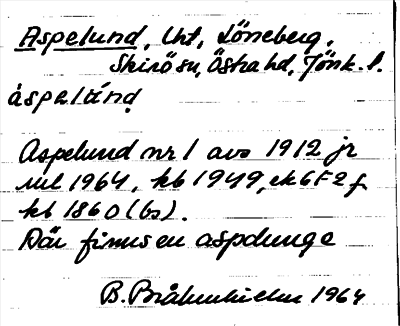 Aspelund, lht, Löneberg,
Skirö sn, Östra hd, Jönk. l.
àspelúnd
Aspelund nr 1 avs 1912 jr
rul 1964, kb 1949, ek 6F2f
kb 1860 (bs).
Där finns en aspdunge
B. 1964